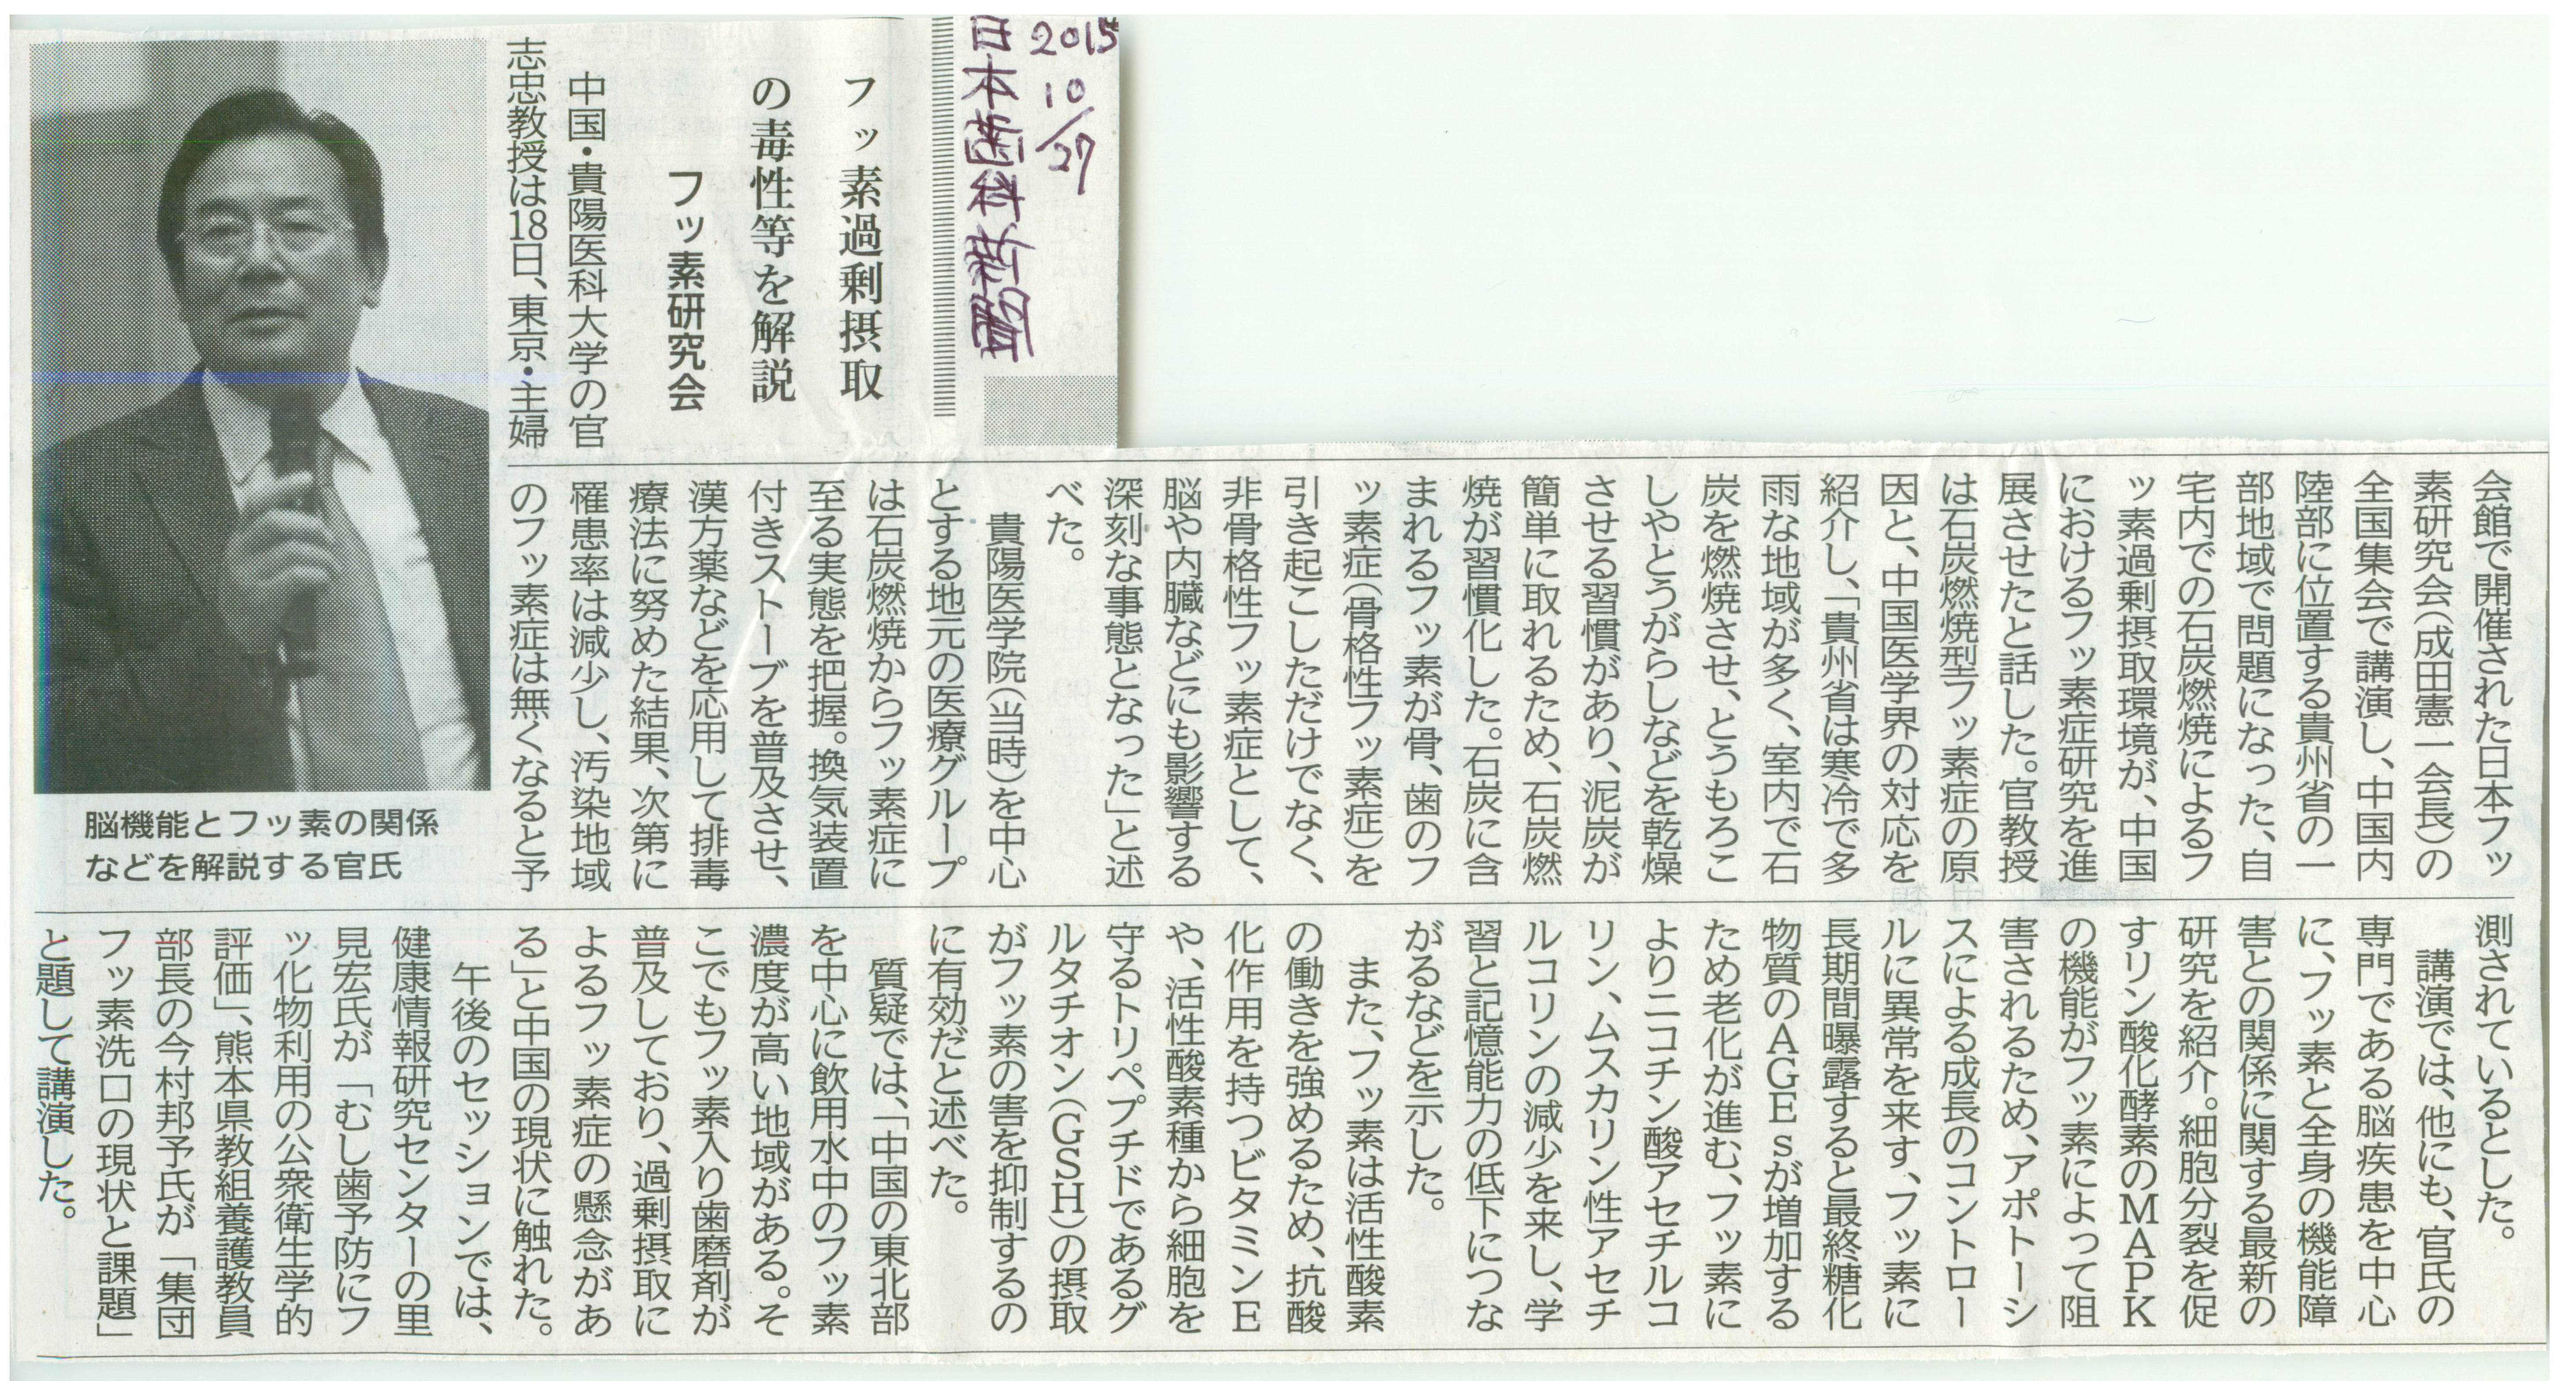 2015
10/27
日本歯科新聞
フッ素過剰摂取
の毒性等を解説
フッ素研究会
中国・貴陽医科大学の官
志忠教授は18日、東京・主婦
会館で開催された日本フッ
素研究会(成田憲一会長)の
全国集会で講演し、中国内
陸部に位置する貴州省の一
部地域で問題になった、自
宅内での石炭燃焼によるフ
ッ素過剰摂取環境が、中国
におけるフッ素症研究を進
展させたと話した。官教授
は石炭燃焼型フッ素症の原
因と、中国医学界の対応を
紹介し、「貴州省は寒冷で多
雨な地域が多く、室内で石
炭を燃焼させ、とうもろこ
しやとうがらしなどを乾燥
させる習慣があり、泥炭が
簡単に取れるため、石炭燃
焼が習慣化した。石炭に含
まれるフッ素が骨、歯のフ
ッ素症(骨格性フッ素症)を
引き起こしただけでなく、
非骨格性フッ素症として、
脳や内臓などにも影響する
深刻な事態となった」と述
べた。
貴陽医学院(当時)を中心
とする地元の医療グループ
は石炭燃焼からフッ素症に
至る実態を把握。換気装置
付きストーブを普及させ、
漢方薬などを応用して排毒
療法に努めた結果、次第に
罹患率は減少し、汚染地域
のフッ素症は無くなると予
測されているとした。
講演では、他にも、官氏の
専門である脳疾患を中心
に、フッ素と全身の機能障
害との関係に関する最新の
研究を紹介。細胞分裂を促
すリン酸化酵素のMAPK
の機能がフッ素によって阻
害されるため、アポトーシ
スによる成長のコントロー
ルに異常を来す、フッ素に
長期間曝露すると最終糖化
物質のAGEsが増加する
ため老化が進む、フッ素に
よりニコチン酸アセチルコ
リン、ムスカリン性アセチ
ルコリンの減少を来し、学
習と記憶能力の低下につな
がるなどを示した。
また、フッ素は活性酸素
の働きを強めるため、抗酸
化作用を持つビタミンE
や、活性酸素種から細胞を
守るトリペプチドであるグ
ルタチオン(GSH)の摂取
がフッ素の害を抑制するの
に有効だと述べた。
質疑では、「中国の東北部
を中心に飲用水中のフッ素
濃度が高い地域がある。そ
こでもフッ素入り歯磨剤が
普及しており、過剰摂取に
よるフッ素症の懸念があ
る」と中国の現状に触れた。
午後のセッションでは、
健康情報研究センターの里
見宏氏が「むし歯予防にフ
ッ化物利用の公衆衛生学的
評価」、熊本県教組養護教員
部長の今村邦予氏が「集団
フッ素洗口の現状と課題」
と題して講演した。
脳機能とフッ素の関係
などを解説する官氏